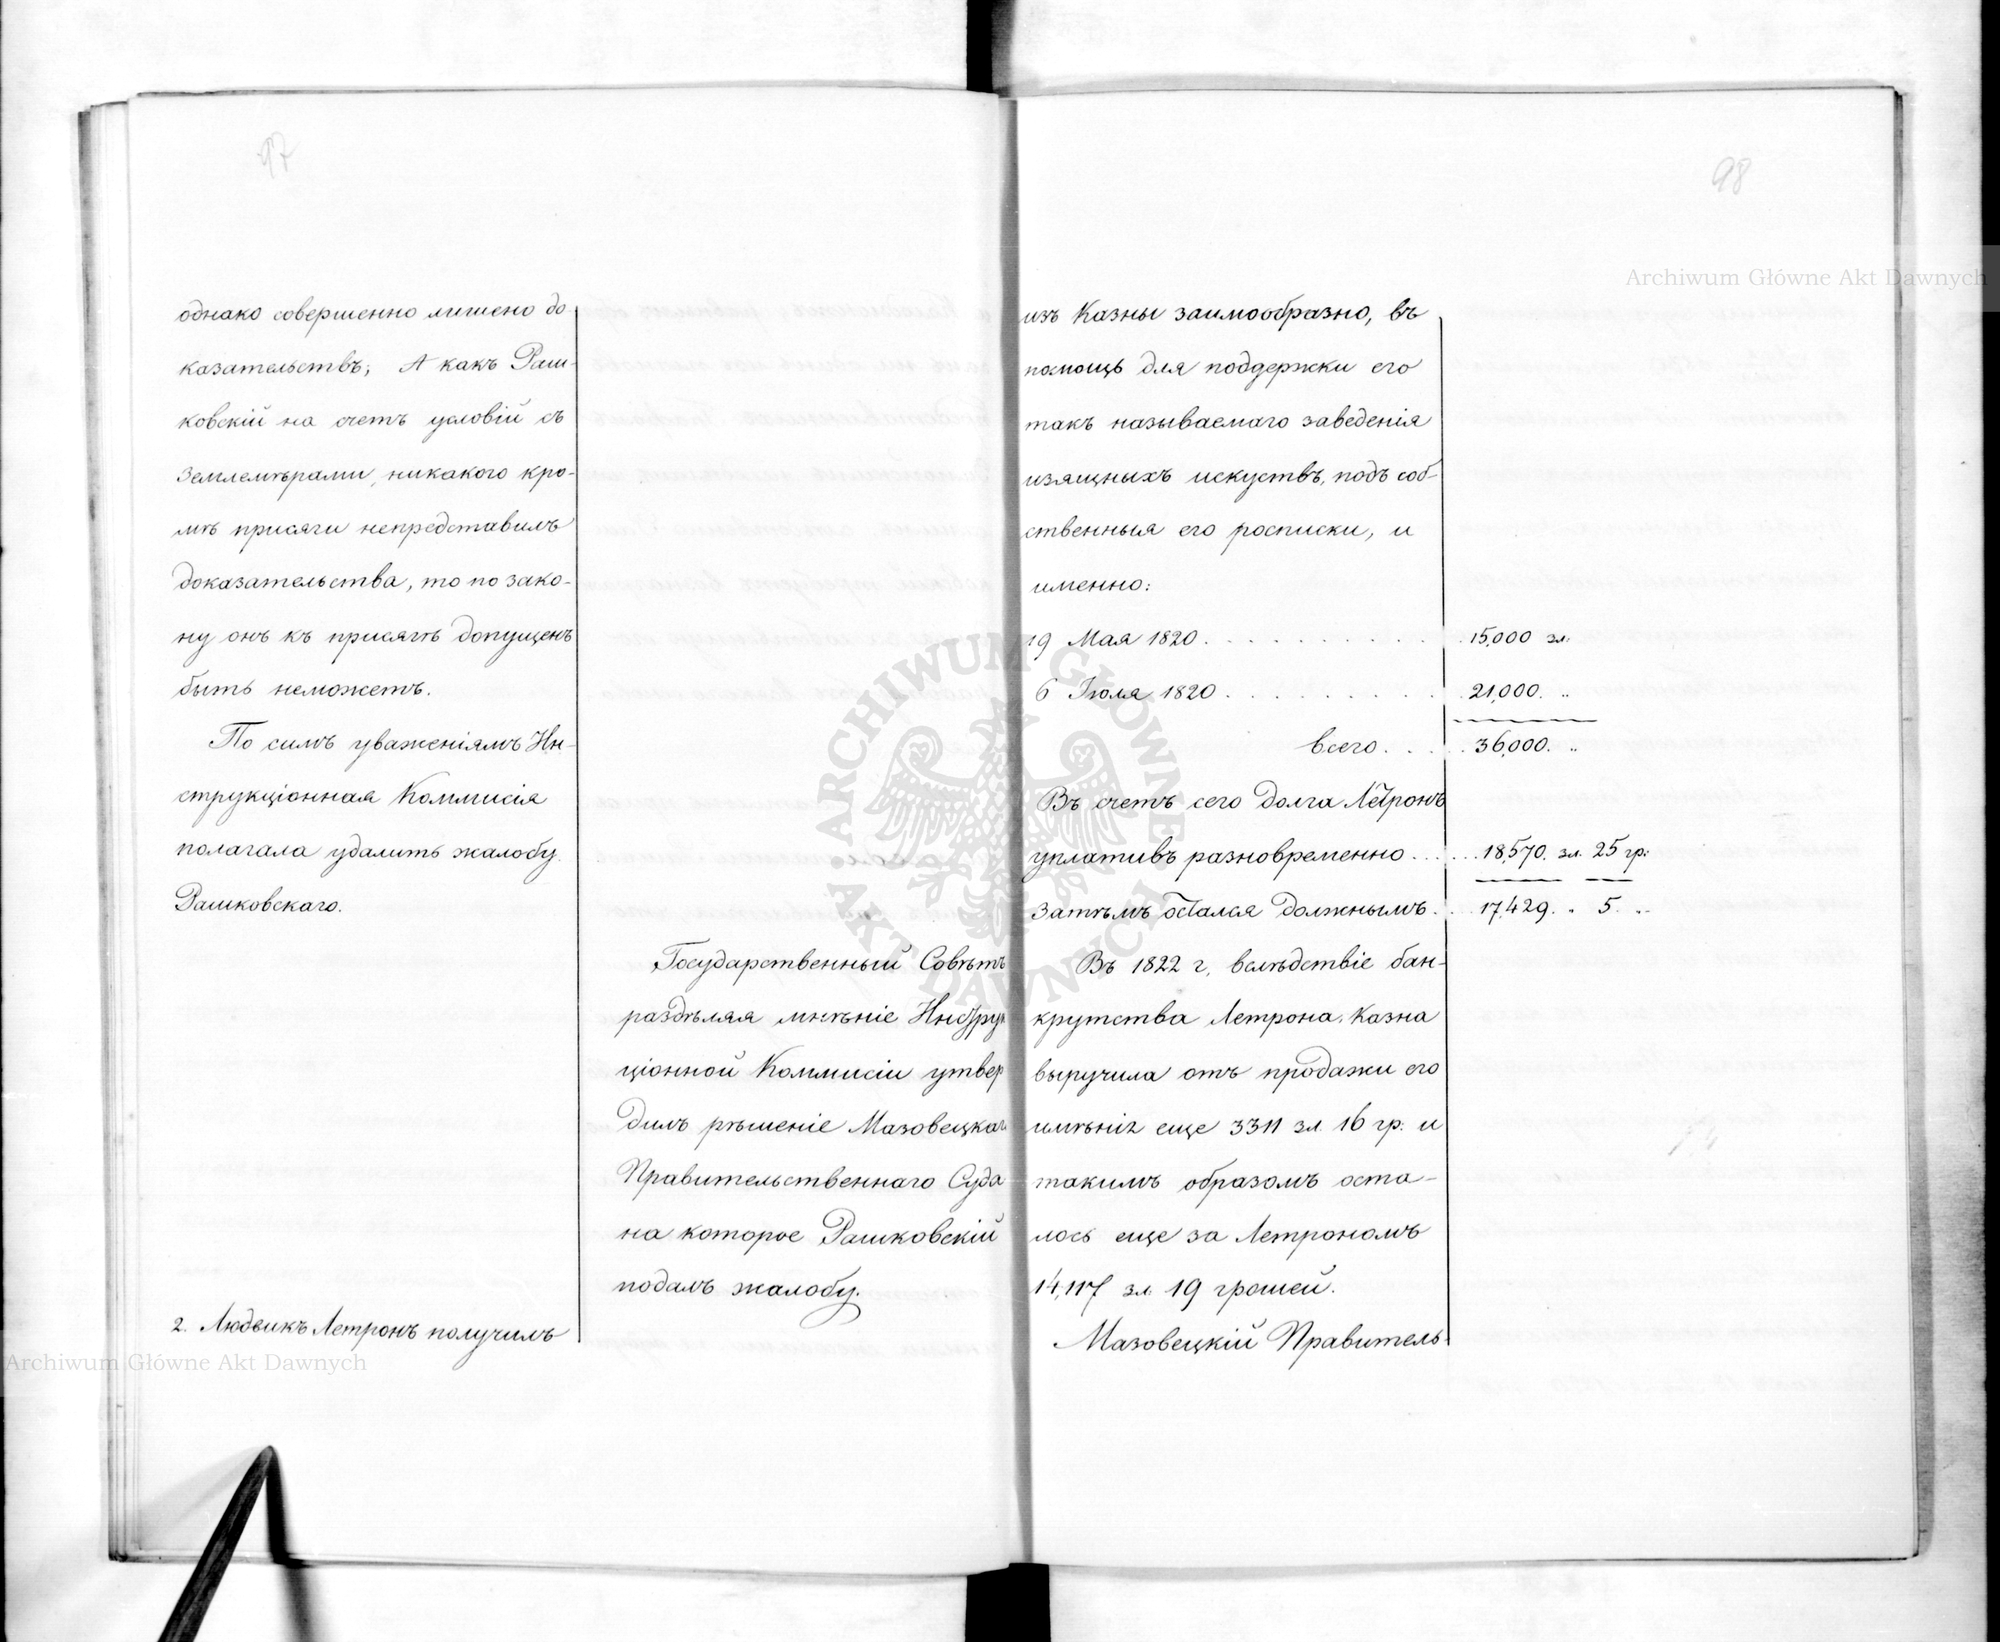 97
однако совершенно лишено до-
казательствъ; А какъ Раш-
ковскій на счетъ условій съ
Землемѣрами, никакого кро-
мѣ присяги непредставилъ
доказательства, то по зако-
ну онъ къ присягѣ допущенъ
быть неможетъ.
По симъ уваженіямъ Ин-
струкціонная Коммисія
полагала удалить жалобу
Рашковскаго.
Государственный Совѣтъ
раздѣляя мнѣніе Инструк
ціонной Коммисіи утвер
дилъ рѣшеніе Мазовецкаго
Правительственнаго Суда
на которое Рашковскій
подалъ жалобу.
2. Людвикъ Летронъ получилъ
98
изъ Казны заимообразно, въ
помощь для поддержки его
такъ называемаго заведенія
изящныхъ искуствъ, подъ соб-
ственныя его росписки, и
именно:
19 Мая 1820 . . . . . . . . . . 15,000 зл.
6 Іюля 1820 . . . . . . . . . 21,000. "
всего. . . . 36,000. "
Въ счетъ сего долга Летронъ
уплативъ разновременно . . . . . 18,570. зл. 25 гр:
Затѣмъ остался должнымъ. . . 17,429. " 5. "
Въ 1822 г. вслѣдствіе бан-
крутства Летрона, Казна
выручила отъ продажи его
имѣнія еще 3311 зл. 16 гр. и
такимъ образомъ оста-
лось еще за Летрономъ
14,117 зл. 19 грошей.
Мазовецкій Правитель-
Archiwum Główne Akt Dawnych
Archiwum Główne Akt Dawnych
ARCHIWUM GŁÓWNE AKT DAWNYCH